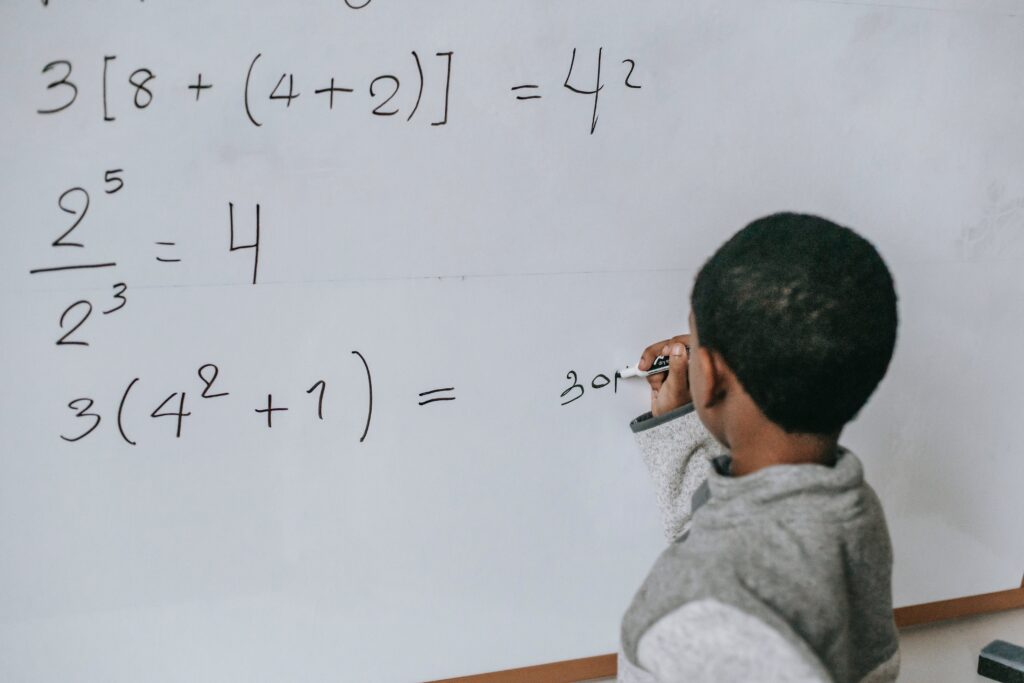 3[8 + (4 + 2)] = 4²
2⁵
= 4
2³
3(4² + 1) =
30